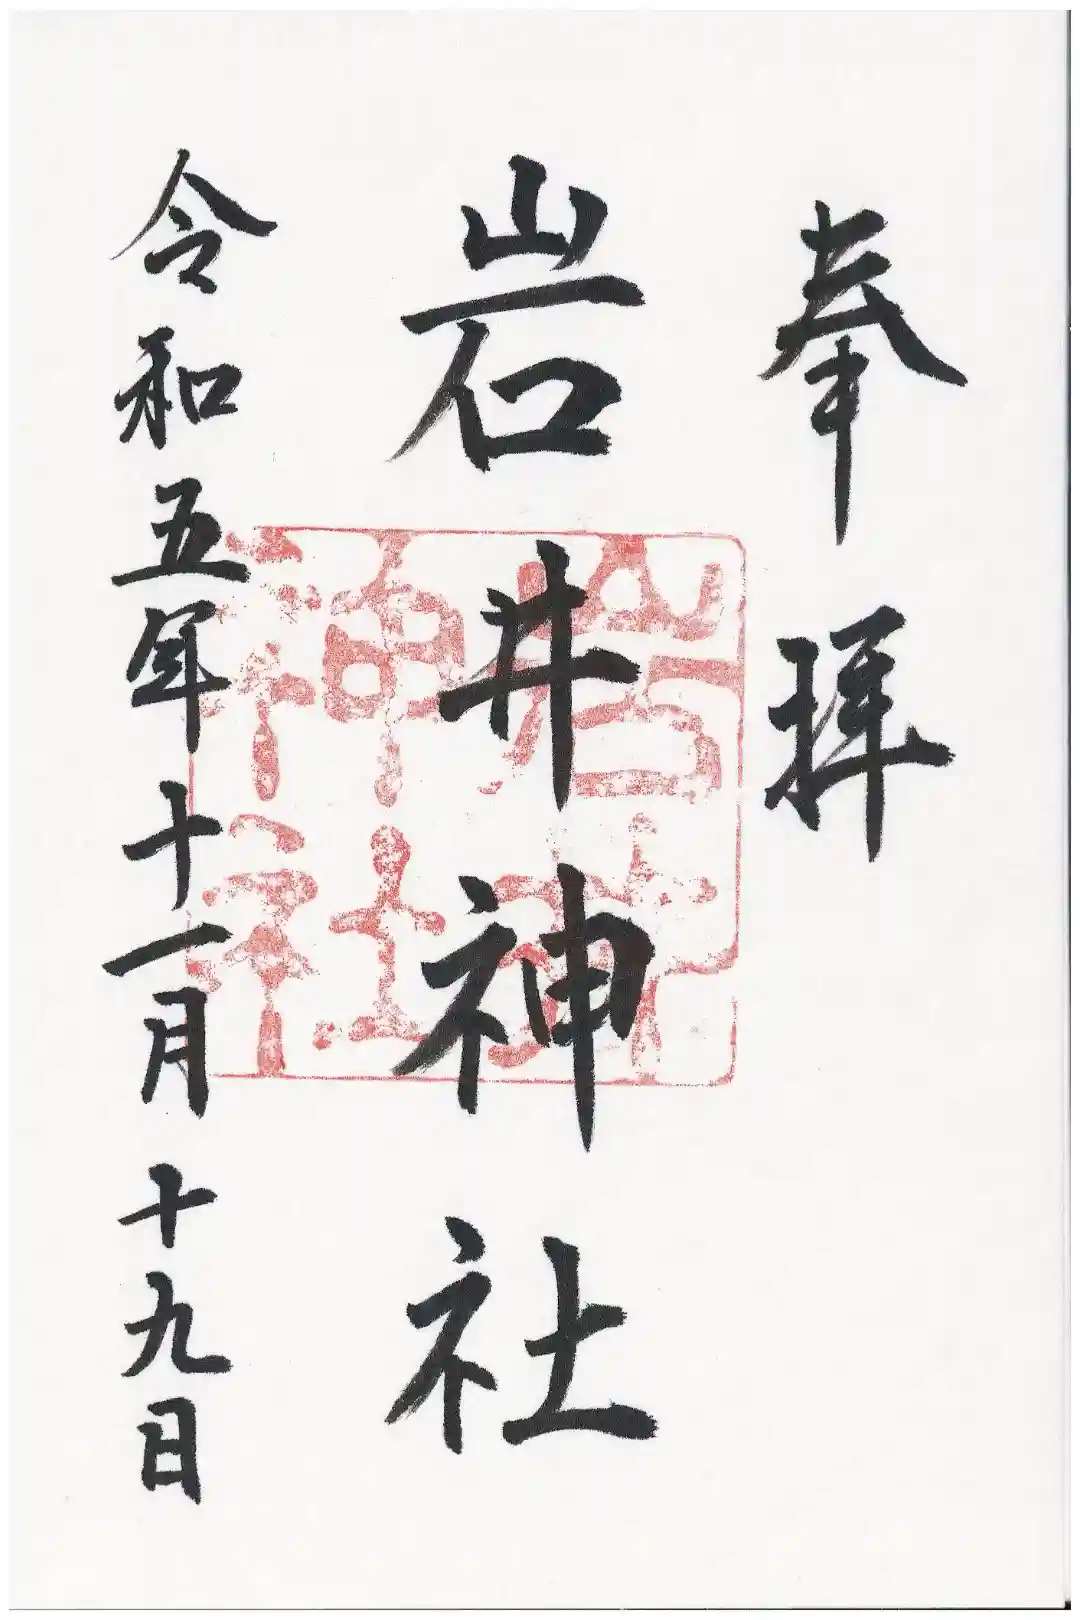 奉拝
岩井神社
岩井神社
令和五年十一月十九日